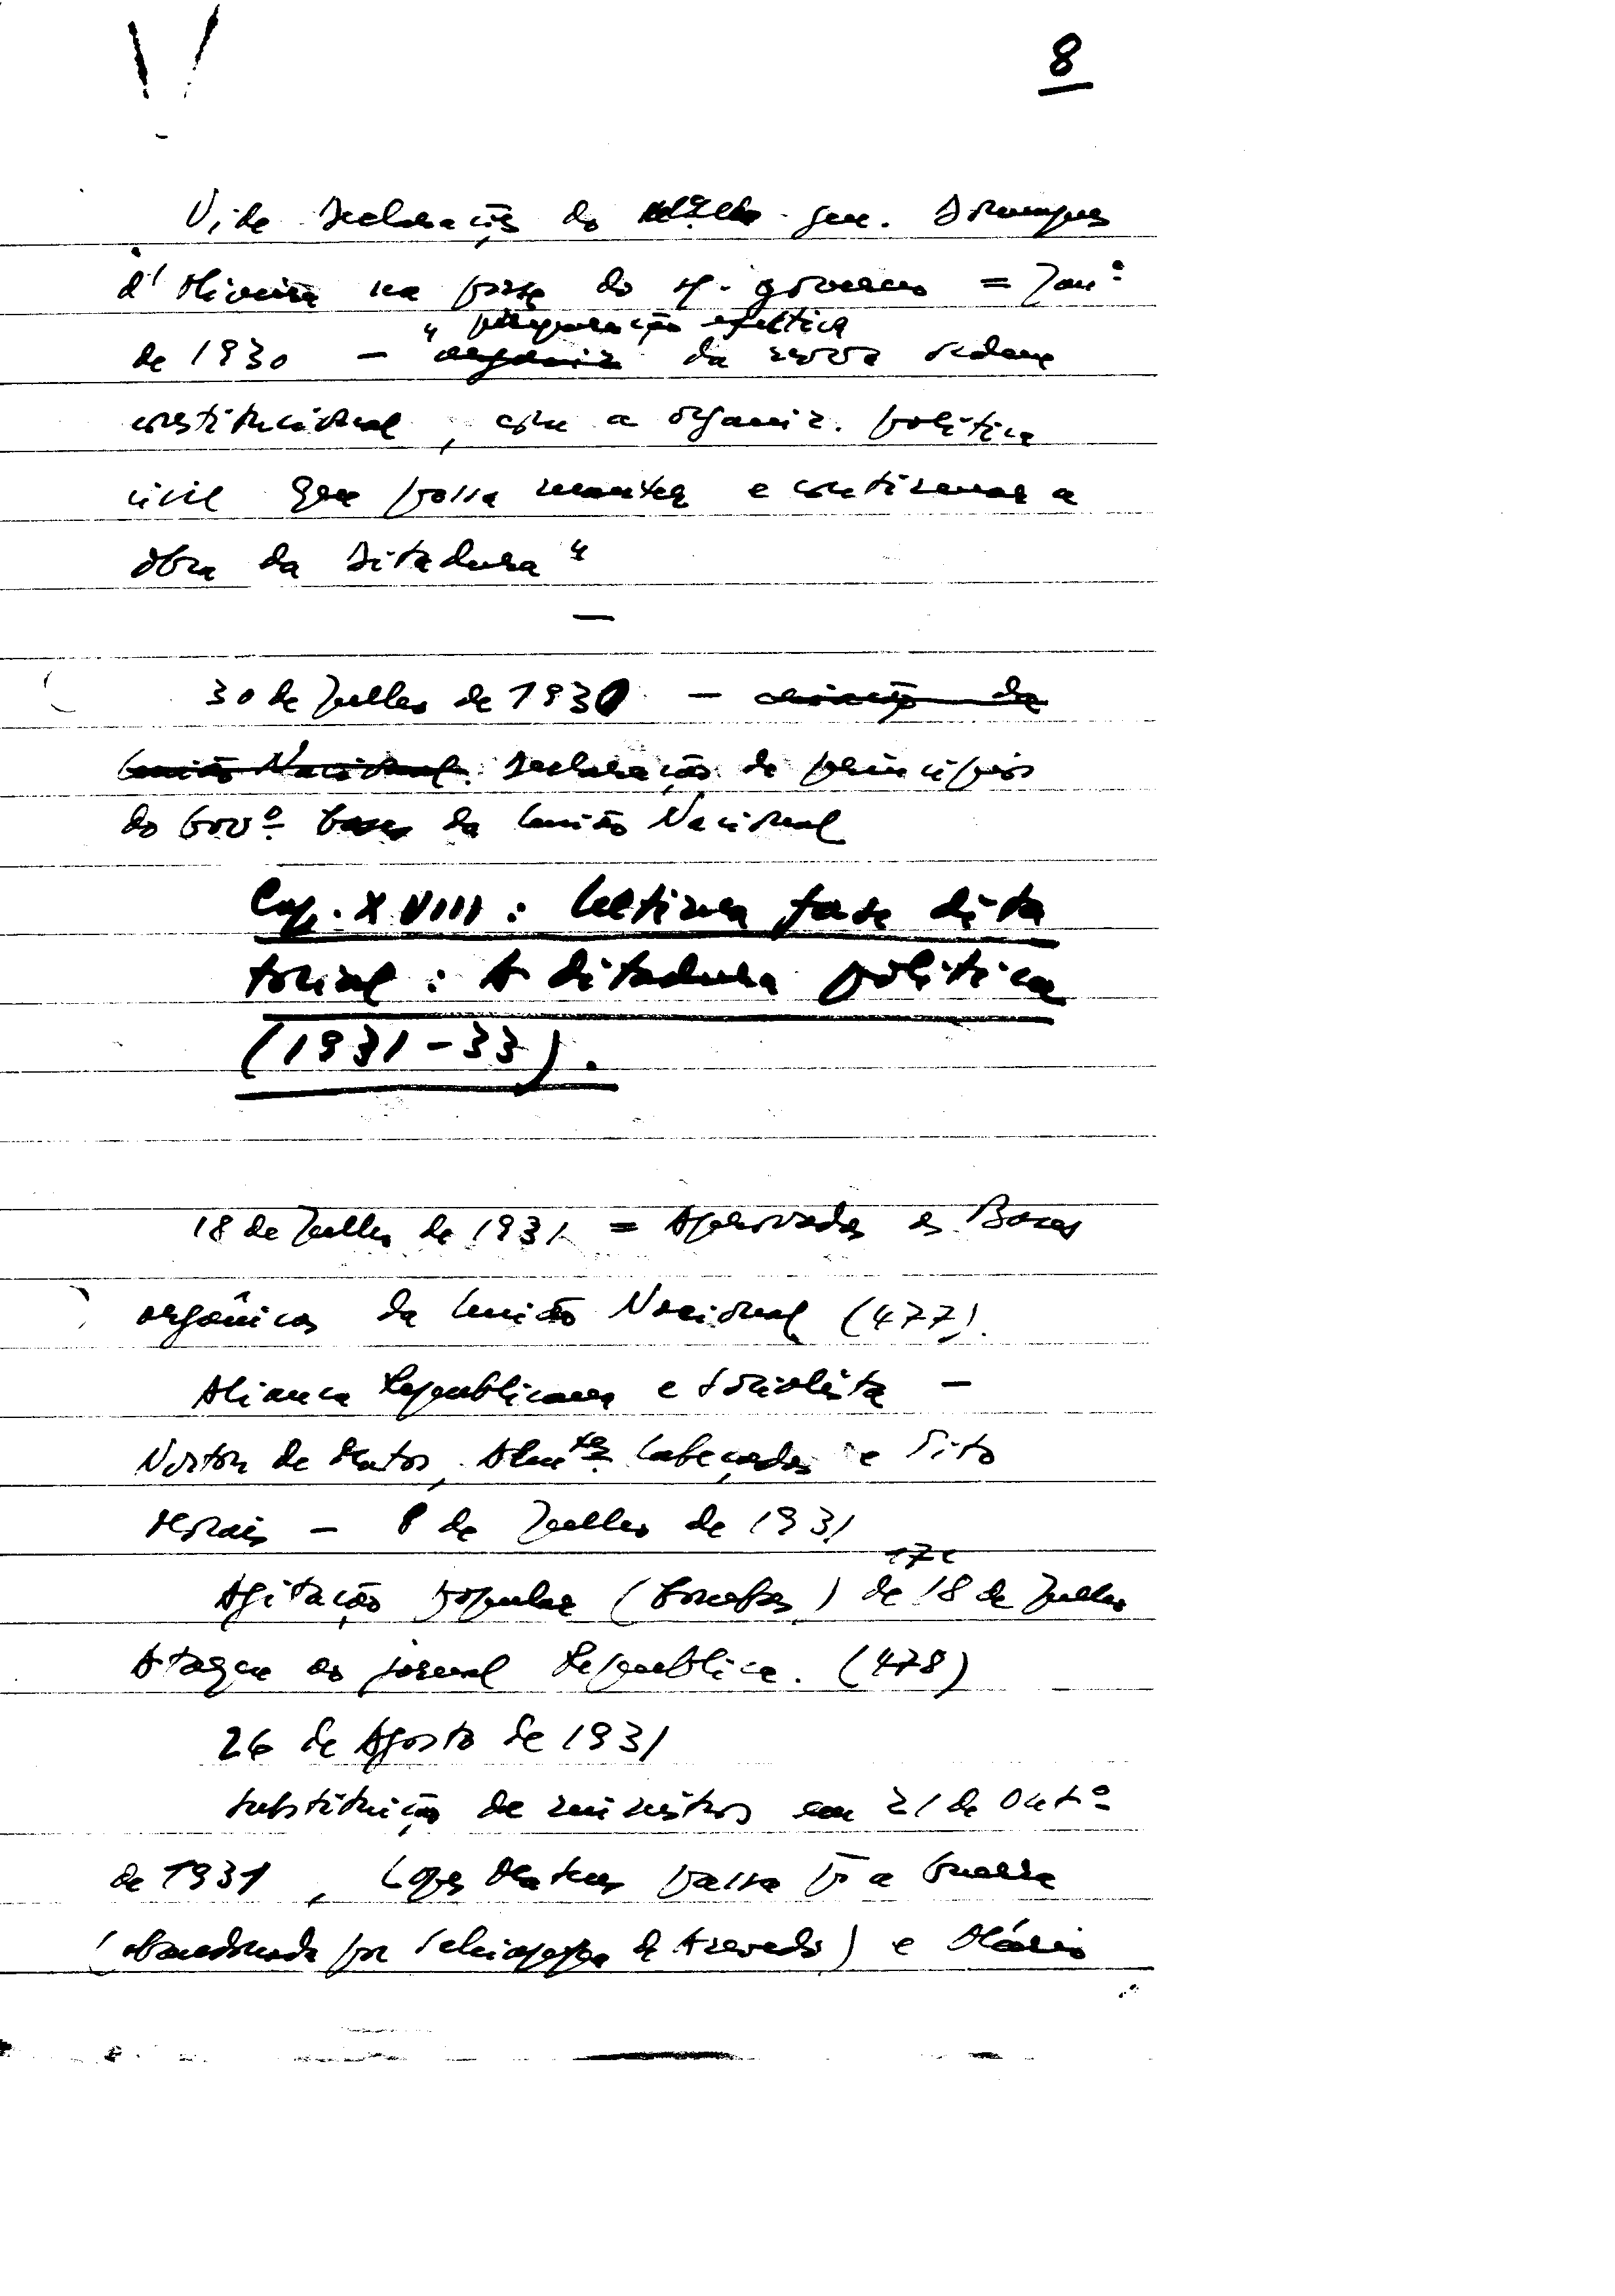 8
Vide Declaração do gen. Domingos
d'Oliveira na posse do s/. governo = Jan.º
de 1930 – " preparação efectiva
organiz da nova ordem
constitucional, com a organiz. política
civil que possa manter e continuar a
obra da Ditadura "
—
30 de Julho de 1930 – criação da
União Nacional. Declaração de princípios
do Gov.º Bases da União Nacional
Cap. XVIII : Ultima fase dita
torial : A ditadura política
(1931-33).
18 de Julho de 1931 = Aprovadas as Bases
orgânicas da União Nacional (477).
Aliança Republicana e Socialista –
Norton de Matos, Alm.te Cabeçadas e Tito
Morais – 8 de Julho de 1931
17 e
Agitação popular (bombas) de 18 de Julho
Ataque ao jornal Republica. (478)
26 de Agosto de 1931
Substituição de ministros em 21 de Out.º
de 1931, Lopes Mateus passa p.ª a Guerra
(abandonada por Schiappa de Azevedo) e Mário